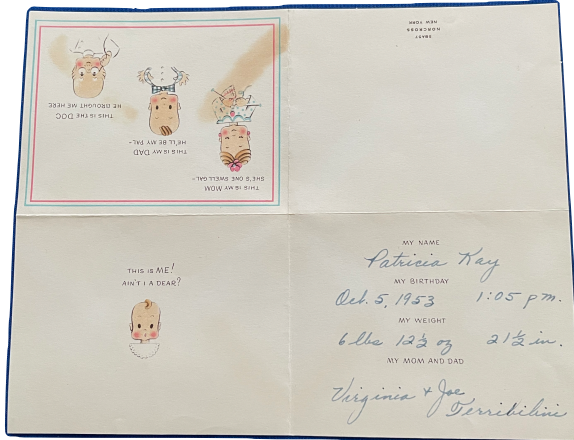 THIS IS MY MOM
SHE'S ONE SWELL GAL-
THIS IS MY DAD
HE'LL BE MY PAL-
THIS IS THE DOC
HE BROUGHT ME HERE
NORCROSS
NEW YORK
THIS IS ME!
AIN'T I A DEAR?
MY NAME
Patricia Kay
MY BIRTHDAY
Oct. 5, 1953 1:05 p.m.
MY WEIGHT
6 lbs 12½ oz 21½ in.
MY MOM AND DAD
Virginia + Joe
Terribilini